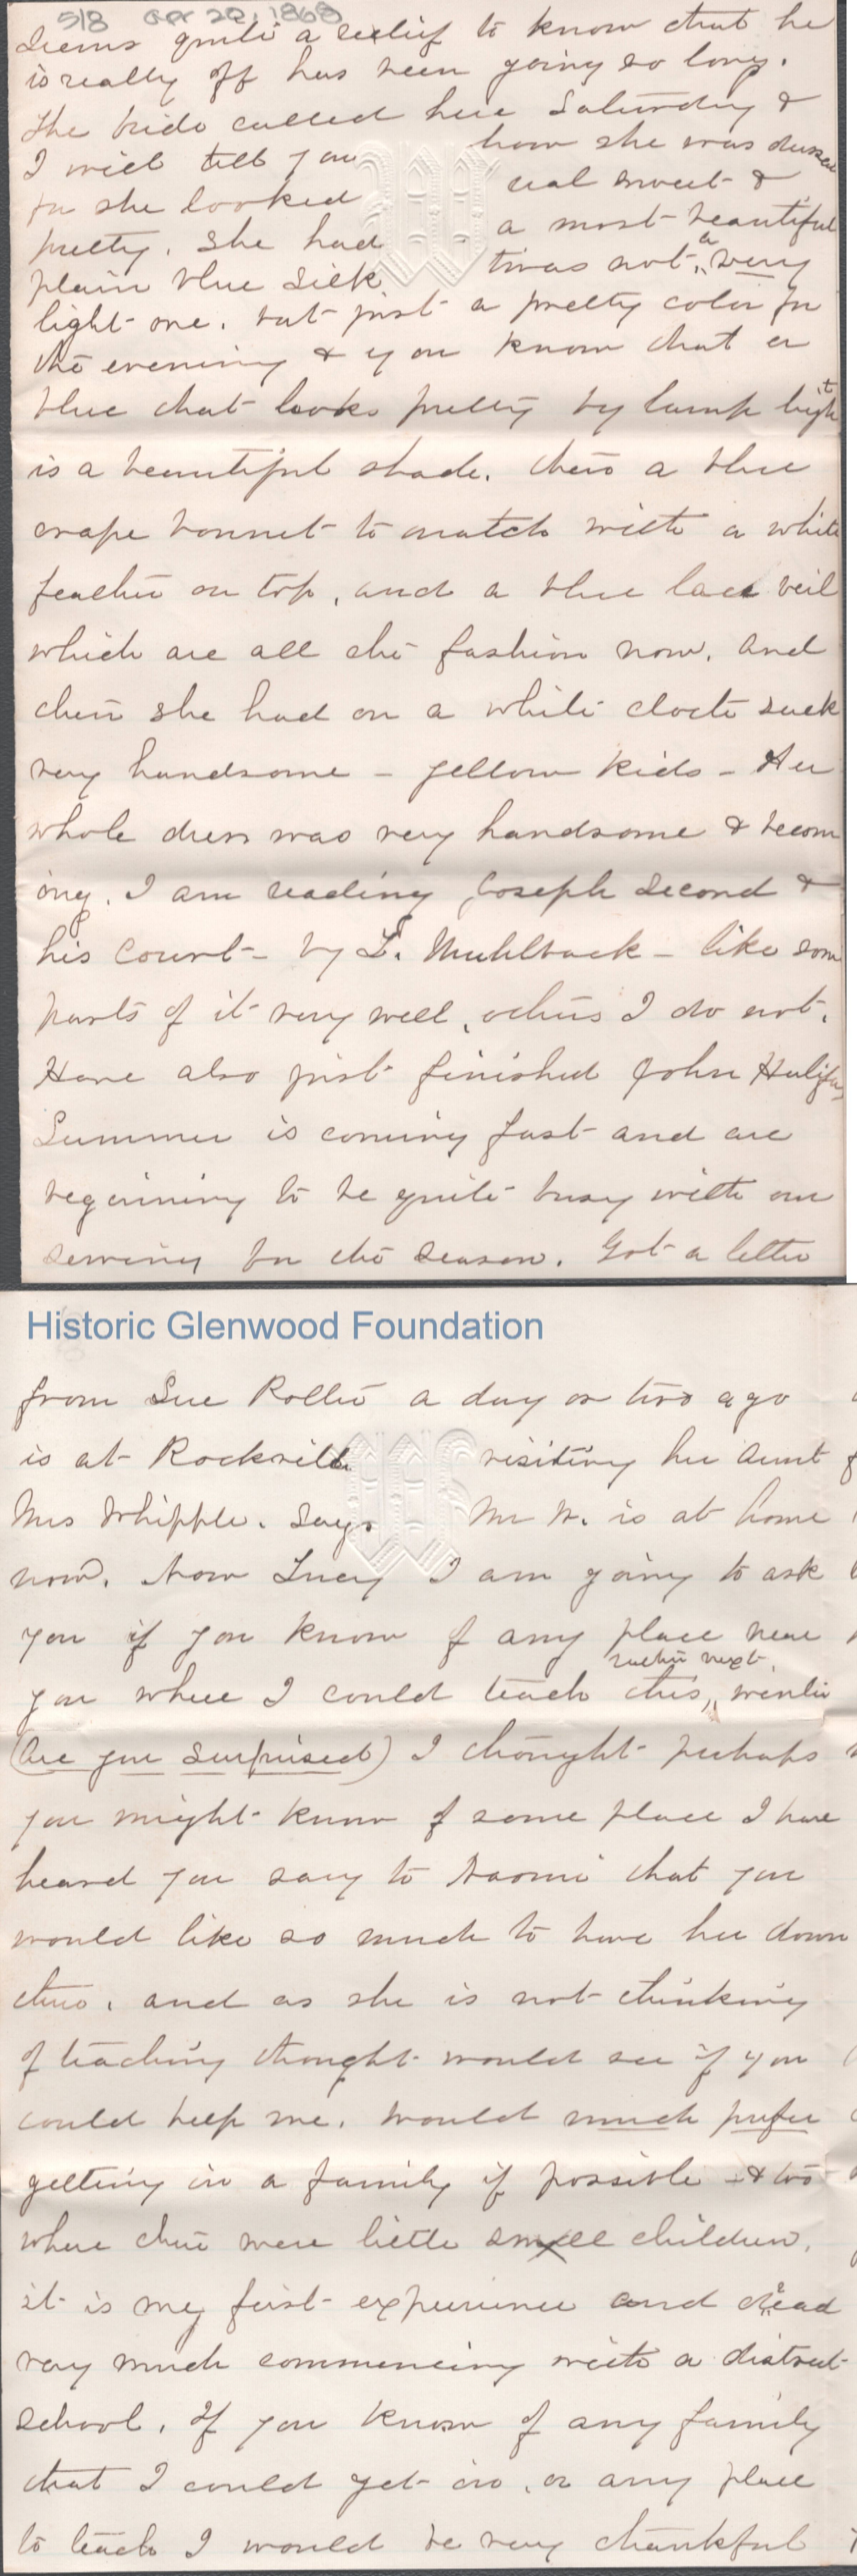 5/8 Apr 20, 1868
Seems quite a relief to know that he
is really off has been going so long.
The bride called here Saturday &
I will tell you how she was dressed
for she looked real sweet &
pretty. She had a most beautiful
plain blue silk twas not a very
light one. but just a pretty color for
the evening & you know that a
blue that looks pretty by lamp light
is a beautiful shade. then a blue
crape bonnet to match with a white
feather on top, and a blue lace veil
which are all the fashion now. and
then she had on a white cloth sack
very handsome – yellow kids – Her
whole dress was very handsome & becom
ing. I am reading Joseph Second &
his Court – by L. Muhlback – like some
parts of it very well, others I do not.
Have also just finished John Halifax
Summer is coming fast and are
beginning to be quite busy with our
sewing for the season. Got a letter
Historic Glenwood Foundation
from Sue Rollie a day or two ago
is at Rockville visiting her Aunt
Mrs Whipple. Says Mr W. is at home
now. Now Lucy I am going to ask
you if you know of any place near
you where I could teach this, rather next winter
(Are you surprised) I thought perhaps
you might know of some place I have
heard you say to Naomi that you
would like so much to have her down
there, and as she is not thinking
of teaching thought would see if you
could help me. Would much prefer
getting in a family if possible – & too
where there were little small children.
it is my first experience and dread
very much commencing with a district
school. If you know of any family
that I could get in, or any place
to teach I would be very thankful